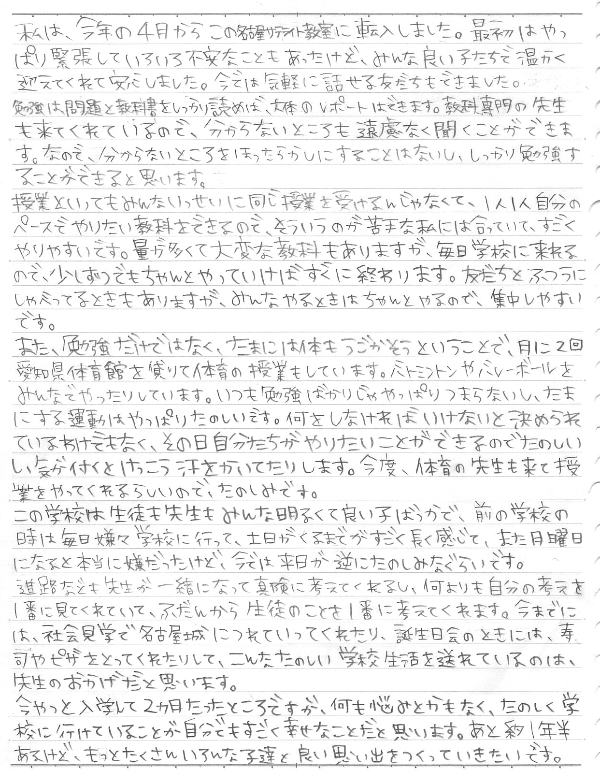 私は、今年の4月からこの名古屋サテライト教室に転入しました。最初はやっ
ぱり緊張していろいろ不安なこともあったけど、みんな良い子たちで温かく
迎えてくれて安心しました。今では気軽に話せる友だちもできました。
勉強は問題と教科書をしっかり読めば、大体のレポートはできます。教科専門の先生
も来てくれているので、分からないところも遠慮なく聞くことができま
す。なので、分からないところをほったらかしにすることはないし、しっかり勉強す
ることができると思います。
授業といってもみんないっせいに同じ授業を受けるんじゃなくて、1人1人自分の
ペースでやりたい教科をできるので、そういうのが苦手な私には合っていて、すごく
やりやすいです。量が多くて大変な教科もありますが、毎日学校に来れる
ので、少しずつでもちゃんとやっていけばすぐに終わります。友だちとふつうに
しゃべってるときもありますが、みんなやるときはちゃんとやるので、集中しやすい
です。
また、勉強だけではなく、たまには体もうごかそうということで、月に2回
愛知県体育館を貸りて体育の授業もしています。バトミントンやバレーボールを
みんなでやったりしています。いつも勉強ばかりじゃやっぱりつまらないし、たま
にする運動はやっぱりたのしいです。何をしなければいけないと決められ
ているわけでもなく、その日自分たちがやりたいことができるのでたのしい
し、気が付くとけっこう汗をかいてたりします。今度、体育の先生も来て授
業をやってくれるらしいので、たのしみです。
この学校は生徒も先生もみんな明るくて良い子ばっかで、前の学校の
時は毎日嫌々学校に行って、土日がくるまでがすごく長く感じて、また月曜日
になると本当に嫌だったけど、今では来日が逆にたのしみなぐらいです。
進路なども先生が一緒になって真険に考えてくれるし、何よりも自分の考えを
1番に見てくれていて、ふだんから生徒のことを1番に考えてくれます。今までに
は、社会見学で名古屋城につれていってくれたり、誕生日会のときには、寿
司やピザをとってくれたりして、こんなたのしい学校生活を送れているのは、
先生のおかげだと思います。
今やっと入学して2カ月たったところですが、何も悩みとかもなく、たのしく学
校に行けていることが自分でもすごく幸せなことだと思います。あと約1年半
あるけど、もっとたくさんいろんな子達と良い思い出をつくっていきたいです。